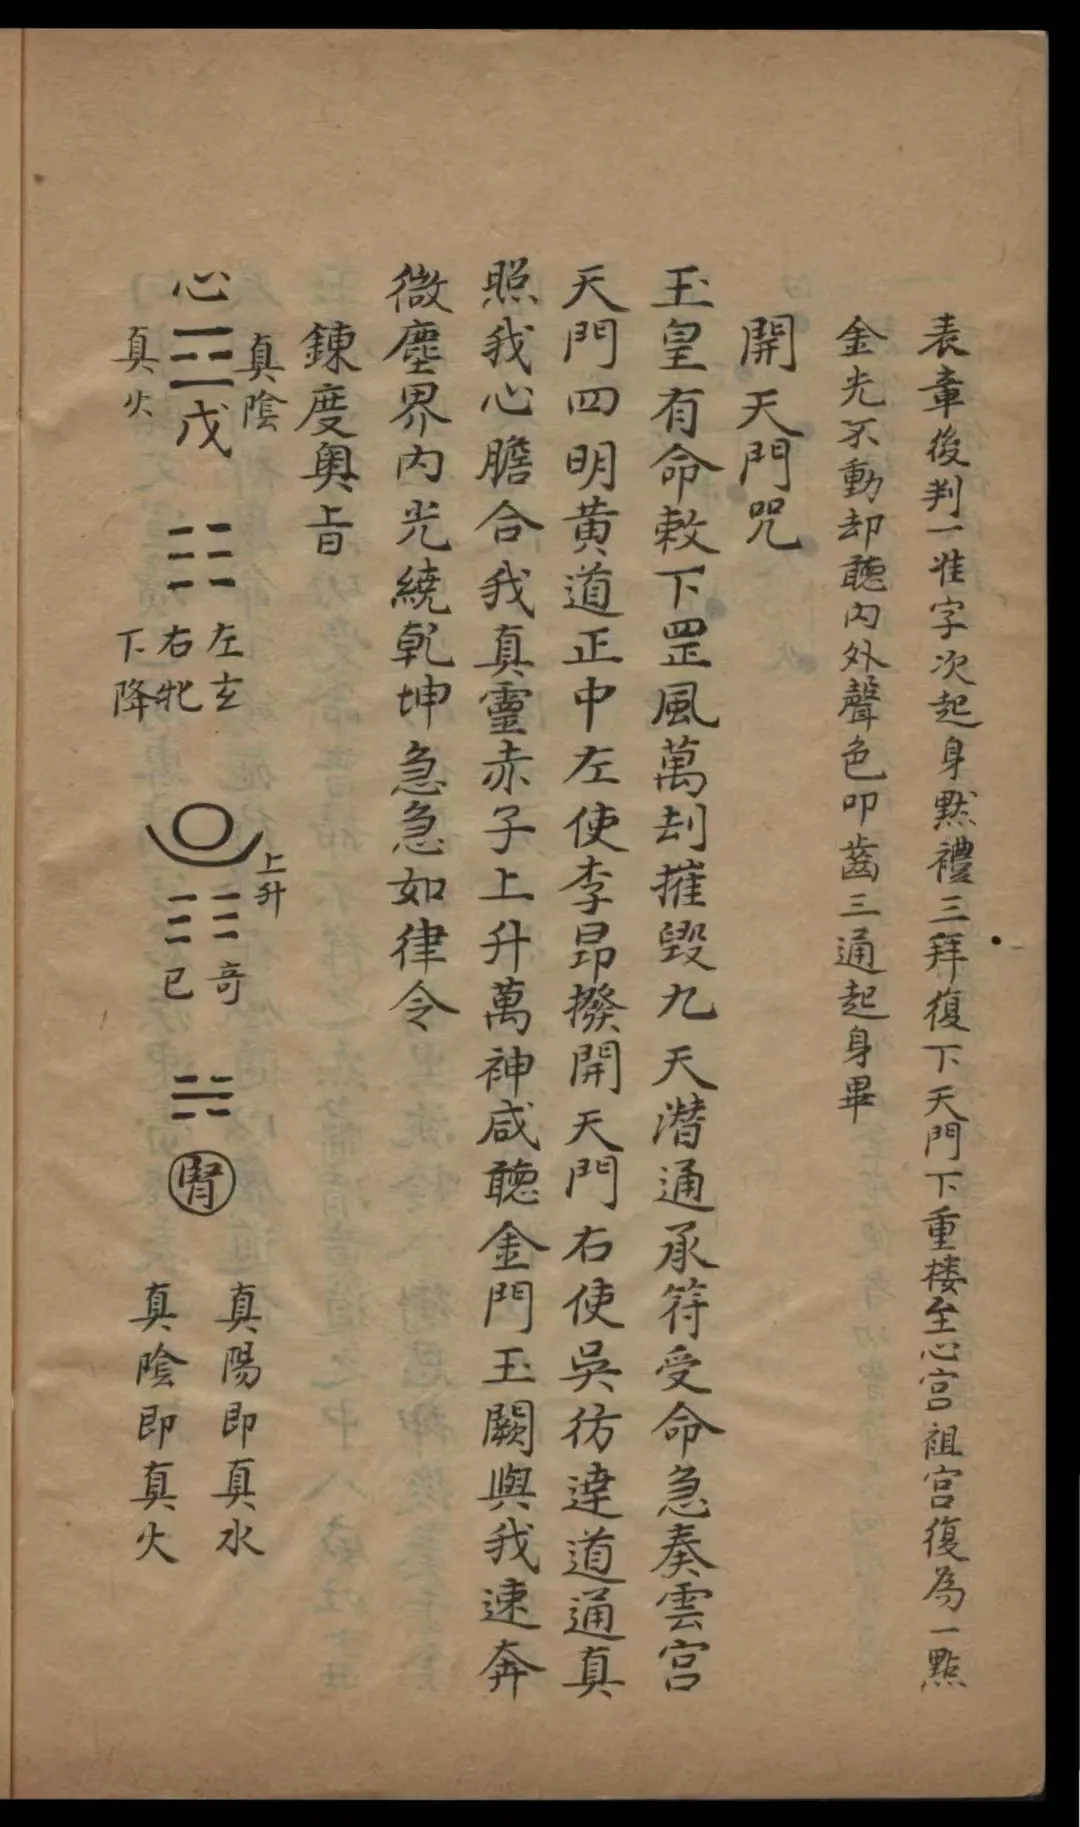 表章後判一准字次起身黙禮三拜復下天門下重楼至心宫祖宫復為一點
金光不動却聽内外聲色叩齒三通起身畢
開天門咒
玉皇有命敕下罡風萬刦摧毀九天潜通承符受命急奏雲宫
天門四明黄道正中左使李昂撥開天門右使吳彷達道通真
照我心膽合我真靈赤子上升萬神咸聽金門玉闕與我速奔
微塵界内光繞乾坤急急如律令
鍊度奥旨
真陰
心
戊
真火
左玄
右牝
下降
上升
奇
已
腎
真陽即真水
真陰即真火